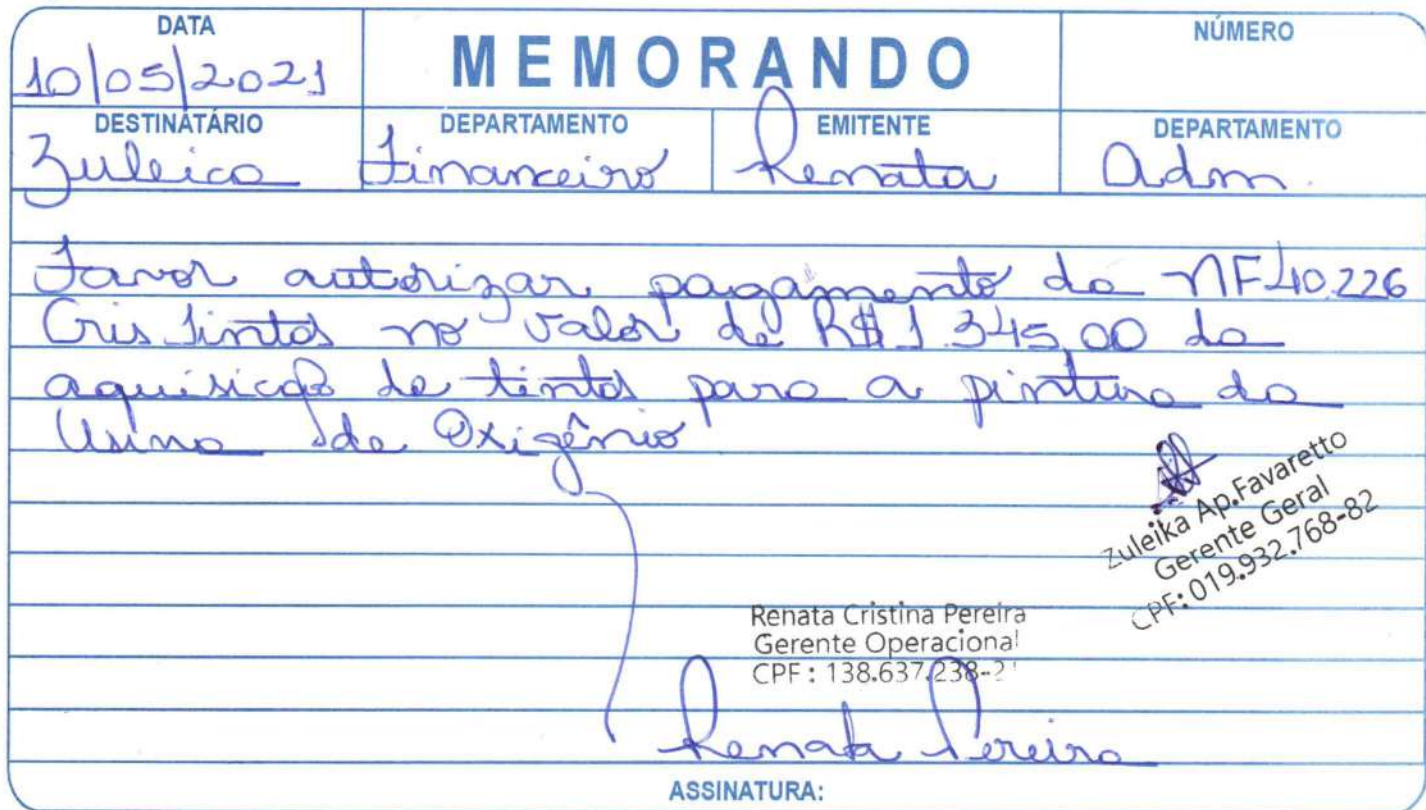 DATA
MEMORANDO
NÚMERO
10/05/2021
DESTINATÁRIO DEPARTAMENTO EMITENTE DEPARTAMENTO
Zuleica Financeiro Renata Adm.
Favor autorizar pagamento da NF 40.226
Cris Tintas no valor de R$ 1.345,00 da
aquisição de tintas para a pintura da
Usina de Oxigênio
Zuleika Ap.Favaretto
Gerente Geral
CPF: 019.932.768-82
Renata Cristina Pereira
Gerente Operacional
CPF: 138.637.238-2
Renata Pereira
ASSINATURA: